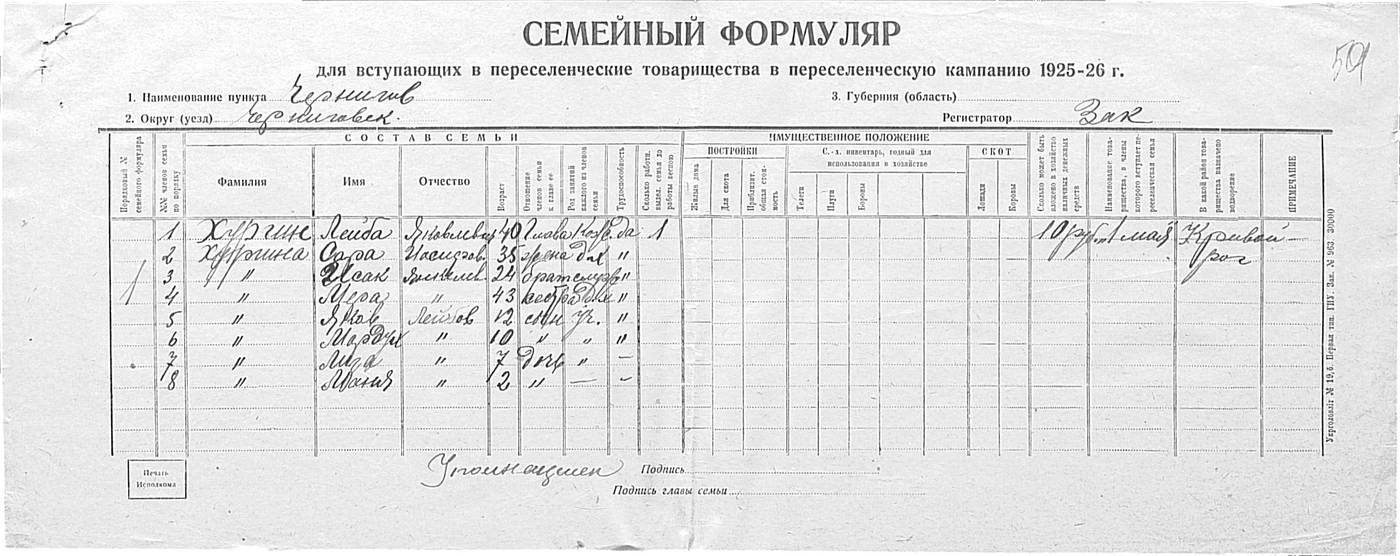 СЕМЕЙНЫЙ ФОРМУЛЯР
для вступающих в переселенческие товарищества в переселенческую кампанию 1925-26 г.
1. Наименование пункта Чернигов 3. Губерния (область)
2. Округ (уезд) Черниговск. Регистратор Зак
СОСТАВ СЕМЬИ ИМУЩЕСТВЕННОЕ ПОЛОЖЕНИЕ
ПОСТРОЙКИ С.-х. инвентарь, годный для использования в хозяйстве СКОТ
Порядковый № семейного формуляра №№ членов семьи по порядку Фамилия Имя Отчество Возраст Отношение членов семьи к главе ее Род занятий каждого из членов семьи Трудоспособность Сколько работн. выдел. семья до работы весною Жилых дома Для скота Приблизит. общая стоимость Телеги Плуги Бороны Лошади Коровы Сколько может быть вложено в хозяйство наличных денежных средств Наименование товарищества, в члены которого вступает переселенческая семья В какой район товарищества назначено водворение ПРИМЕЧАНИЕ
1 Хургин Лейба 40 Глава да 1 10 руб. 1 мая Кривой-рог
2 Хургина Сара 35 жена д.х "
3 " Исак 24 брат "
4 " Мера " 43 сестра д.х "
5 " Яков Лейбов 12 сын уч. "
6 " Мордух " 10 " " "
7 " Лиза " 7 дочь " –
8 " Маня " 2 " — –
Печать Исполкома
Подпись
Подпись главы семьи
Укрголовліт № 19,6. Первая тип. ГИУ. Зак. № 963. 30000